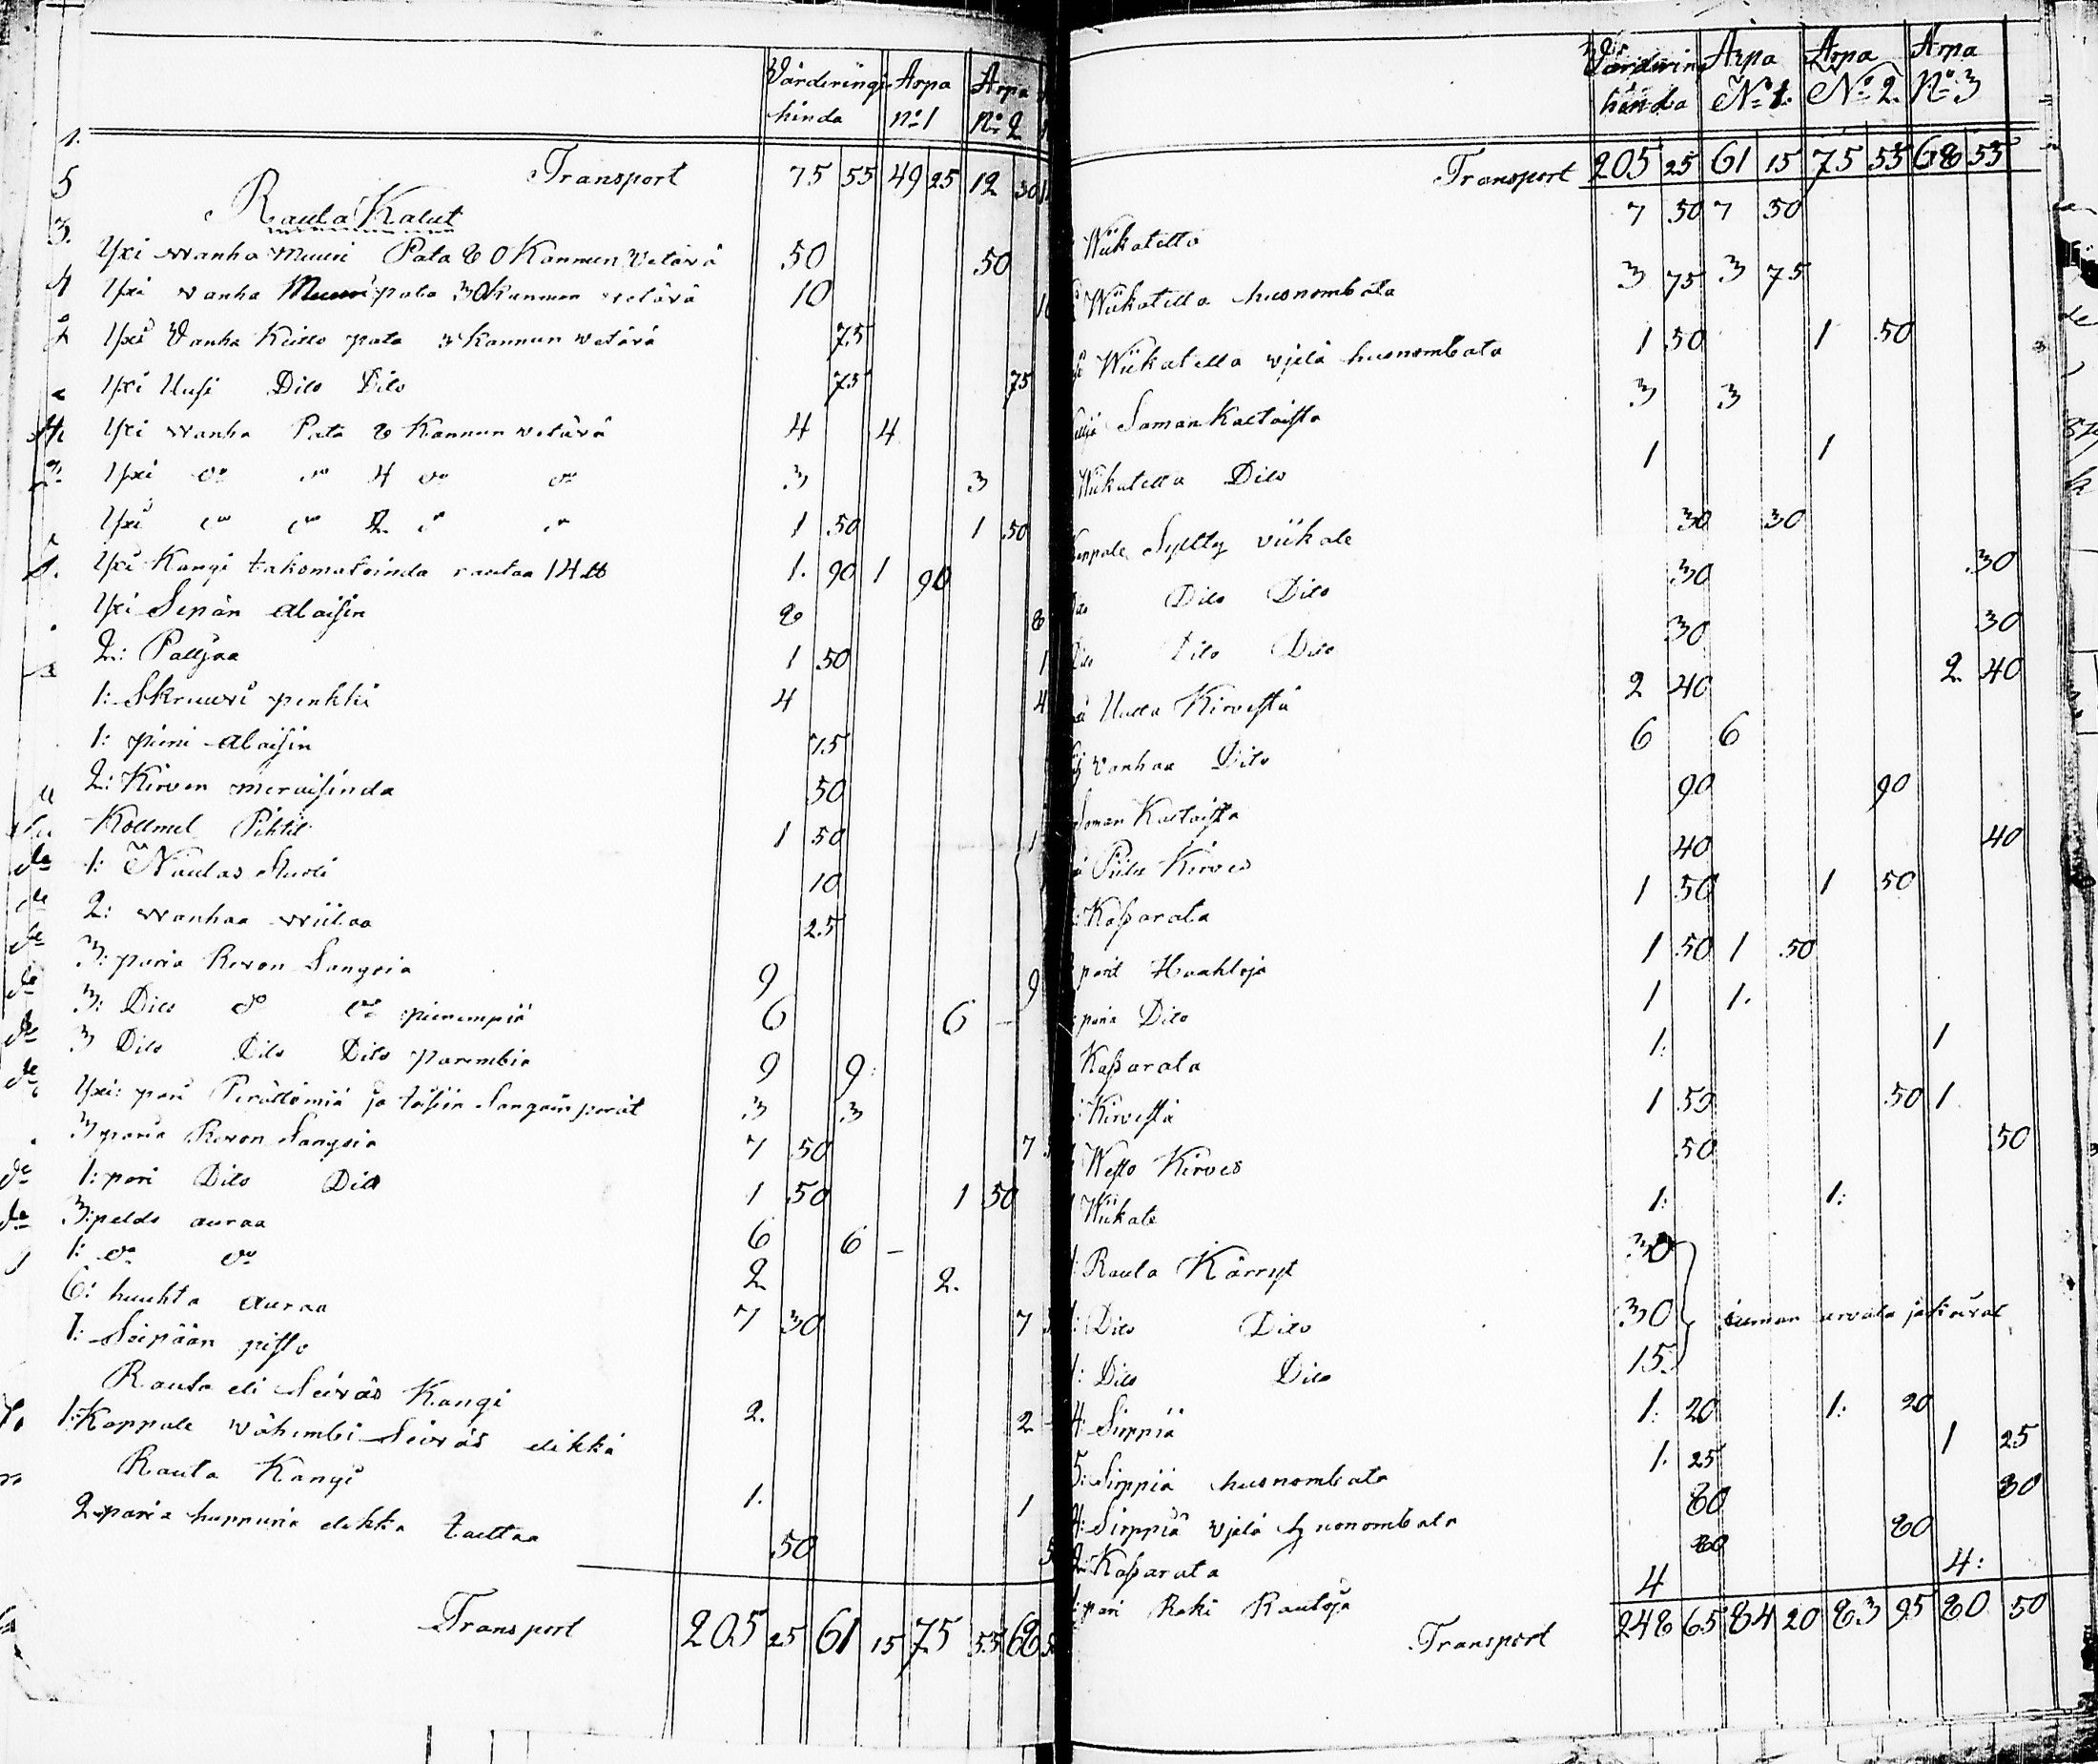 Värderingi Arpa Arpa
hinda No 1 No 2
Transport 75 55 49 25 12 30
Rauta Kalut
Yxi wanha Muuri Pata 80 Kannun Vetävä 50 50
Yxi vanha Muuri pata 30 Kannun vetävä 10
Yxi Vanha Keitto pata 3 Kannun vetävä 75
Yxi Uusi Dito Dito 75 75
Yxi wanha Pata 8 Kannun vetävä 4 4
Yxi do do 4 do do 3 3
Yxi do do 2 do do 1 50 1 50
Yxi Kangi takomatoinda rautaa 14 lb 1. 90 1 90
Yxi Sepän Alaisin 8 8
2: Palljaa 1 50 1
1: Skruuvi penkki 4 4
1: pieni Alaisin 75
2: Kirven meraisinda 50
Kollmet Pihtit 1 50 1
1: Naulas Stuoli 10
2: wanhaa wiilaa 25
3: paria Revon Sangoia 9 9
3: Dito do do pienempiä 6 6
3 Dito Dito Dito parembia 9 9
Yxi: pari Perättömiä ja toisia Sangain perät 3 3
3 paria Revon Sangoia 7 50 7
1: pari Dito Dito 1 50 1 50
3: peldo auraa 6 6
1: do do 2 2.
6: huuhta auraa 7 30 7
1: Seipään pisto
Rauta eli Seiväs Kangi 2. 2
1: Kappale wähembi Seiväs elikkä
Rauta Kangi 1. 1
2 paria huppuria elikkä taltaa 50
Transport 205 25 61 15 75 55 68
Värderin Arpa Arpa Arpa
hinda No 1. No 2. No 3
Transport 205 25 61 15 75 55 68 55
Wiikatetta 7 50 7 50
Wiikatetta huonombata 3 75 3 75
Wiikatetta vielä huonombata 1 50 1 50
Saman Kaltaista 3 3
Wiikatetta Dito 1 1
Syltty viikate 30 30
Dito Dito 30 30
Dito Dito 30 30
Uutta Kirvestä 2 40 2 40
Vanhaa Dito 6 6
Saman Kaltaista 90 90
Piila Kirves 40 40
Kaßarata 1 50 1 50
parit Haahloja 1 50 1 50
paria Dito 1 1.
Kaßarata 1: 1
Kirvestä 1 50 50 1
Westo Kirves 50 50
Wiikate 1: 1:
1: Rauta Kärryt 30
1: Dito Dito 30 arvata
1: Dito Dito 15
4: Sirppiä 1: 20 1: 20
5: Sirppiä huonombata 1. 25 1 25
4: Sirppiä vielä huonombata 80 80
2: Kaßarata 80 80
1: pari Reki Rautoja 4 4:
Transport 248 65 84 20 83 95 80 50